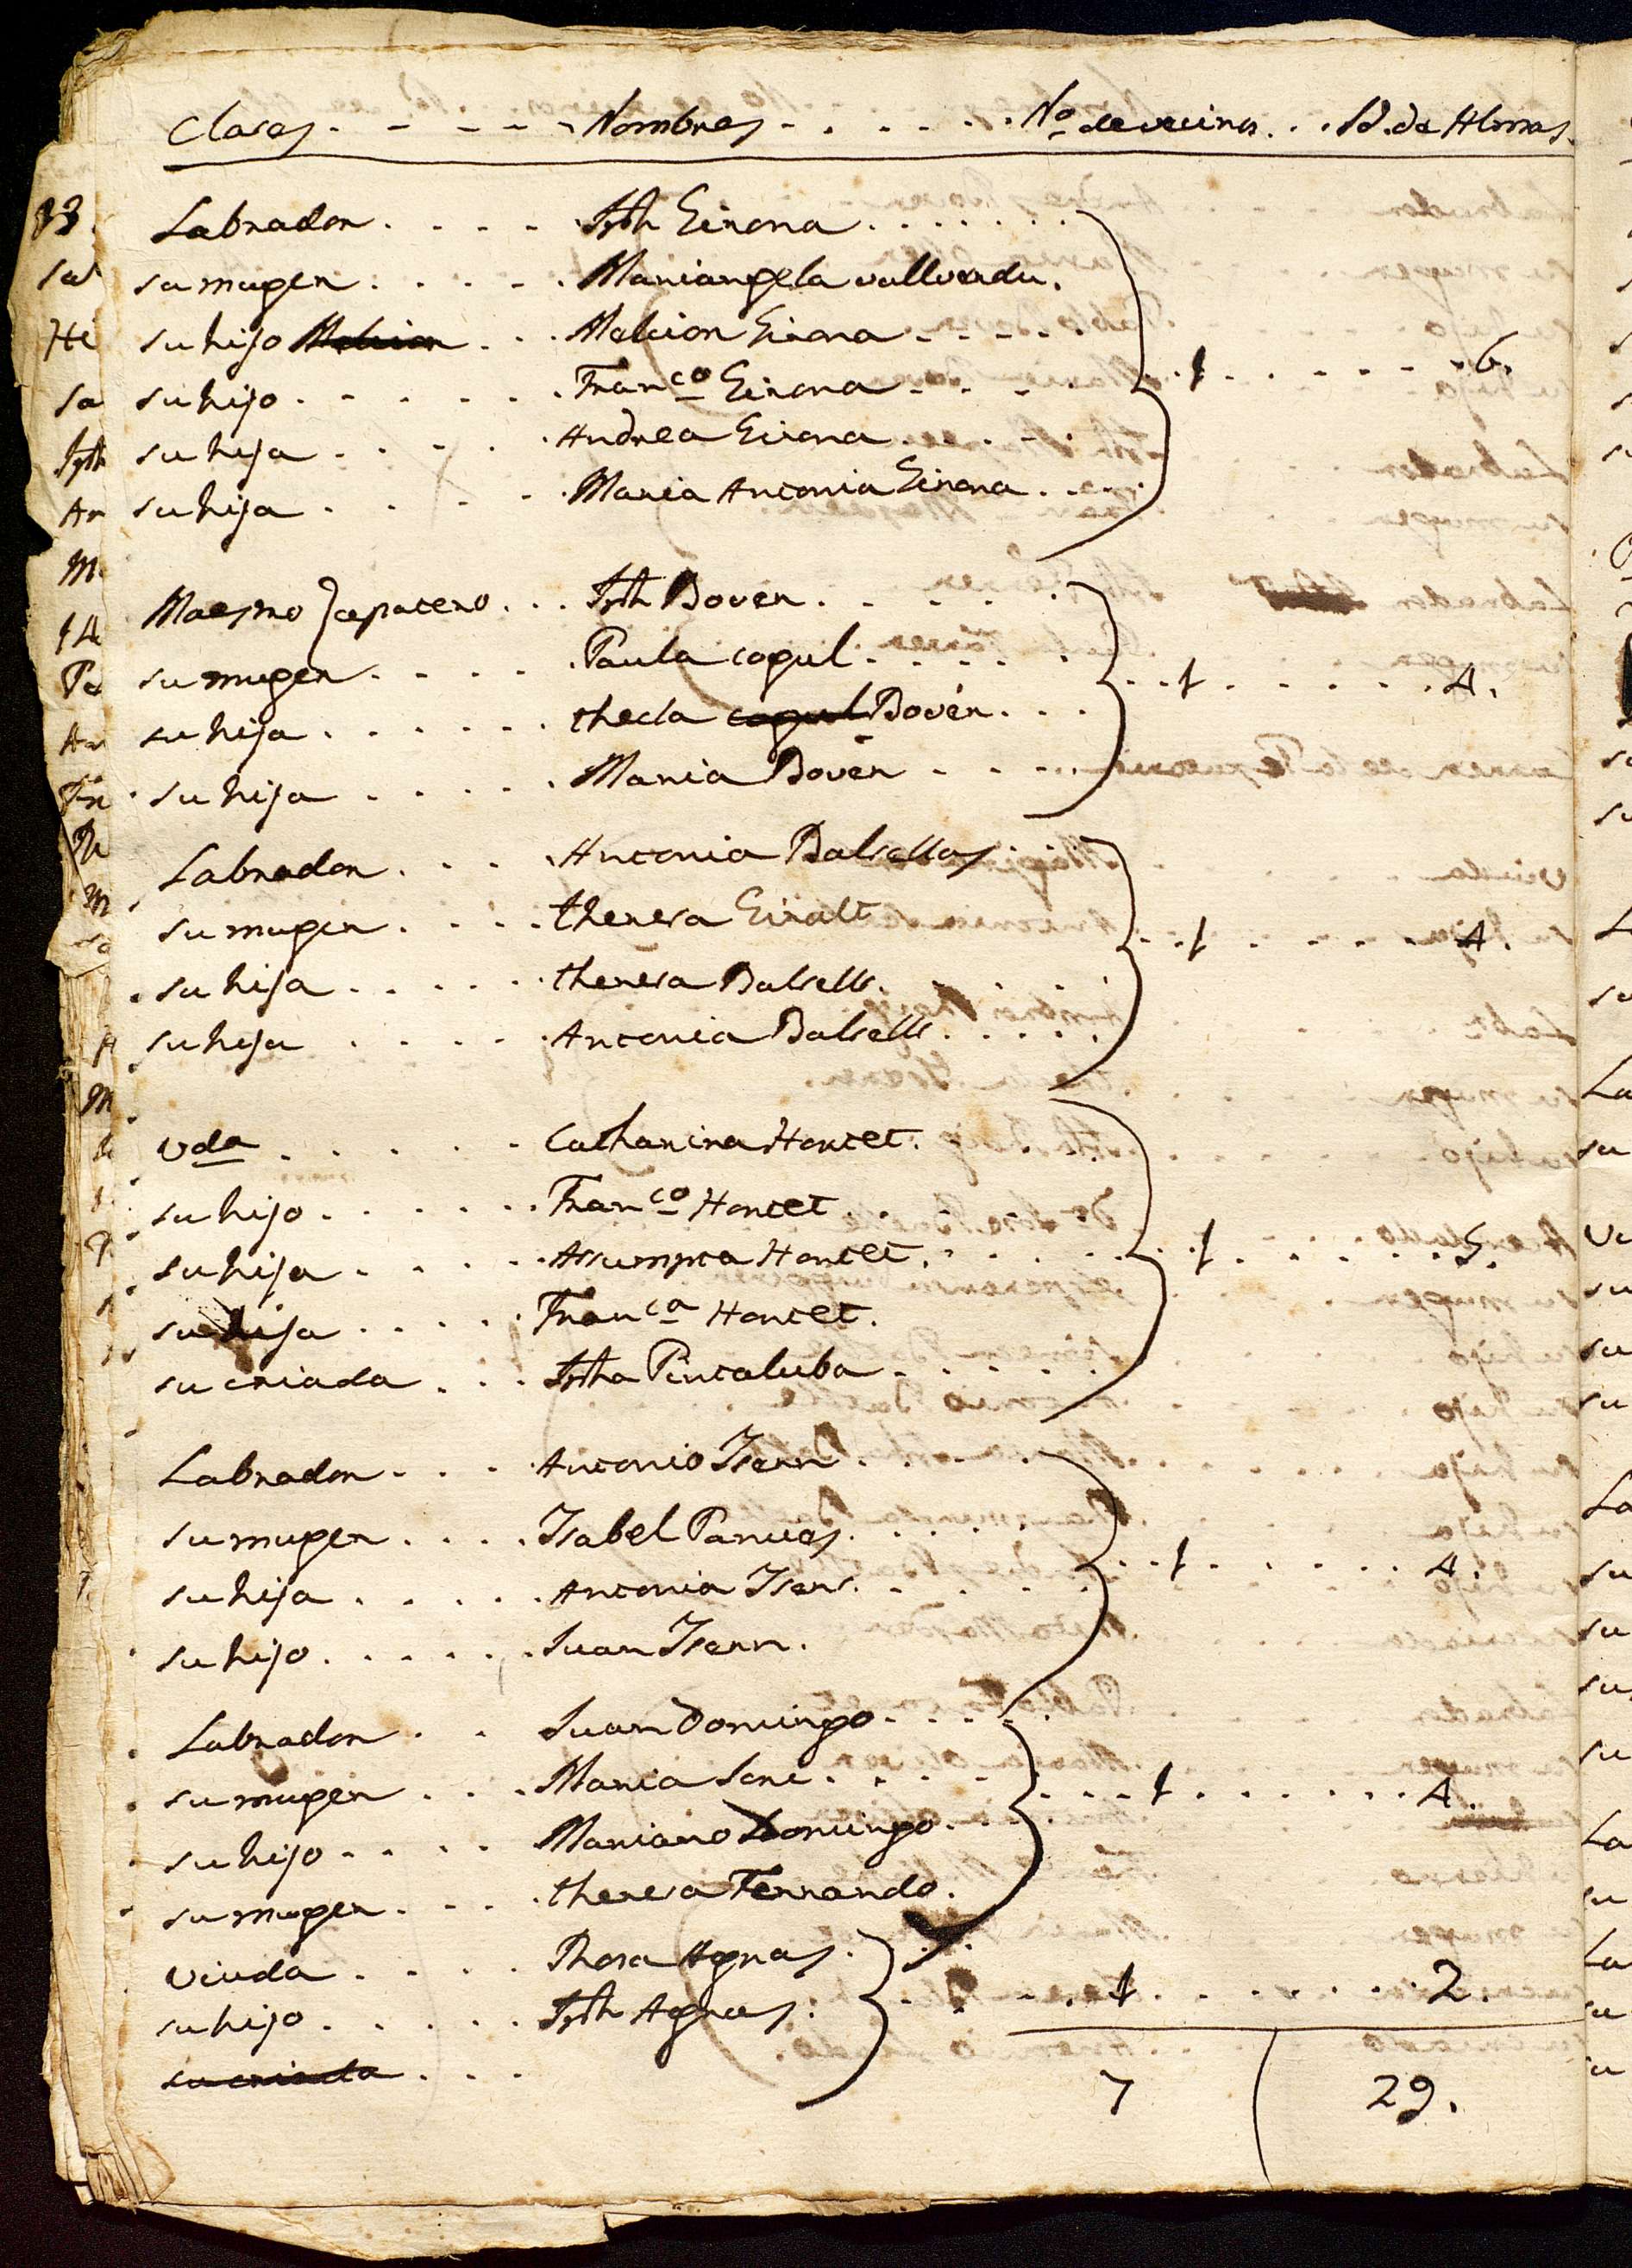 Clases - - - - - Nombres - . . . . . No de vecinos . . Id. de Almas.
Labrador . . . . Jph Girona . . . . . . .
su muger . . . . . Mariangela vallverdu .
su hijo Melcion . . . Melcion Girona - - - -
su hijo . . . . . . . Franco Girona - - - - . 1 . . . . . . 6.
su hija . . . . . Andrea Girona . . . - .
su hija . . . . . Maria Antonia Girona . . . .
Maestro zapatero . . . Jph Bover . . . . . .
su muger . . . . . Paula cogul . . . . . . . . 1 . . . . . . . 4.
su hija . . . . . . . thecla cogul Bover . . .
su hija . . . . . . Maria Bover - - - -
Labrador . . . . Antonia Balsellas .
su muger . . . . . theresa Giralt . . 1 . . . . . . 4.
su hija . . . . . . theresa Balsells . . . . .
su hija . . . . . Antonia Balsells . . . . .
vda . . . . . . Catharina Hortet .
su hijo . . . . . . . Franco Hortet . . .
su hija . . . . . Assumpta Hortet . . . . . . . . 1 . . . . . . 5.
su hija . . . . . Franca Hortet .
su criada . . . Jpha Pintaluba . . . . . .
Labrador . . . . Antonio Isern . . . . .
su muger . . . . . Isabel . . . . . . . 1 . . . . . . 4.
su hija . . . . . Antonia Isern . . . . .
su hijo . . . . . . Juan Isern .
Labrador . . Juan Domingo . . . . .
su muger . . . . Maria . . . . . . . . 1 . . . . . . 4.
su hijo . . . . . Mariano Domingo .
su muger . . . . theresa Ferrando .
viuda . . . . . Rosa Agras .
su hijo . . . . . . Jph Agras . . . . . 1 . . . . . . 2.
su criada . . .
7 29.